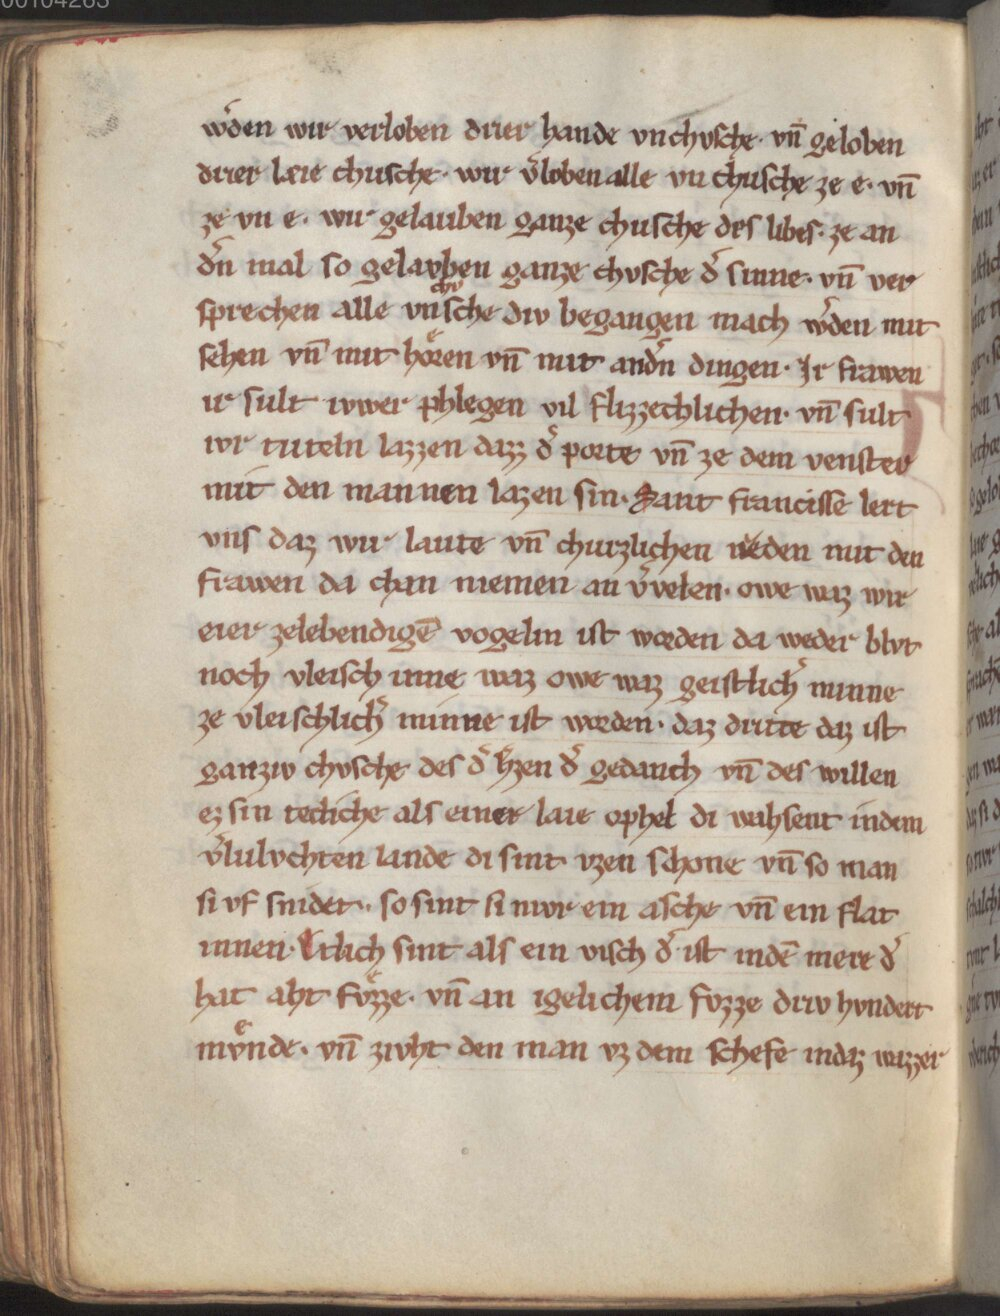 00104263
wͤden wir verloben drier hande vnchvsche· vn̄ geloben
drier laie chusche· wir v̾loben alle vn chusche ze e· vn̄
ze vn e· wir gelauben ganze chusche des libes· ze an
d̾n mal so gelavben ganze chvsche d̾ sinne· vn̄ ver
sprechen alle vnchvsche div begangen mach w̾den mit
sehen vn̄ mit hoͤren vn̄ mit and̾n dingen· Ir frawen
ir sult iwer phlegen vil flizzechlichen· vn̄ sult
ivr tuteln lazzen dazz d̾ porte vn̄ ze dem venster
mit den mannen lazen sin· Sant francisse lert
vns daz wir laute vn̄ churzlichen reden mit den
frawen da chan niemen an v̾velen· owe waz wir
eier zelebendigē vogelin ist worden da weder blvt
noch vleisch inne waz owe waz geistlich̾ minne
ze vleischlich̾ minne ist worden· daz dritte daz ist
ganziv chvsche des d̾ h̾zen d̾ gedanch vn̄ des willen
ez sin tetliche als einer laie ophel di wahsent indem
v̾lulvchten lande di sint vzen schone vn̄ so man
si vf snidet· so sint si nivr ein asche vn̄ ein flat
innen· Etlich sint als ein visch d̾ ist indē mere d̾
hat aht fvͤzze· vn̄ an igelichem fvzze driv hvndert
mvͤnde· vn̄ zivht den man vz dem schefe indaz wazzer